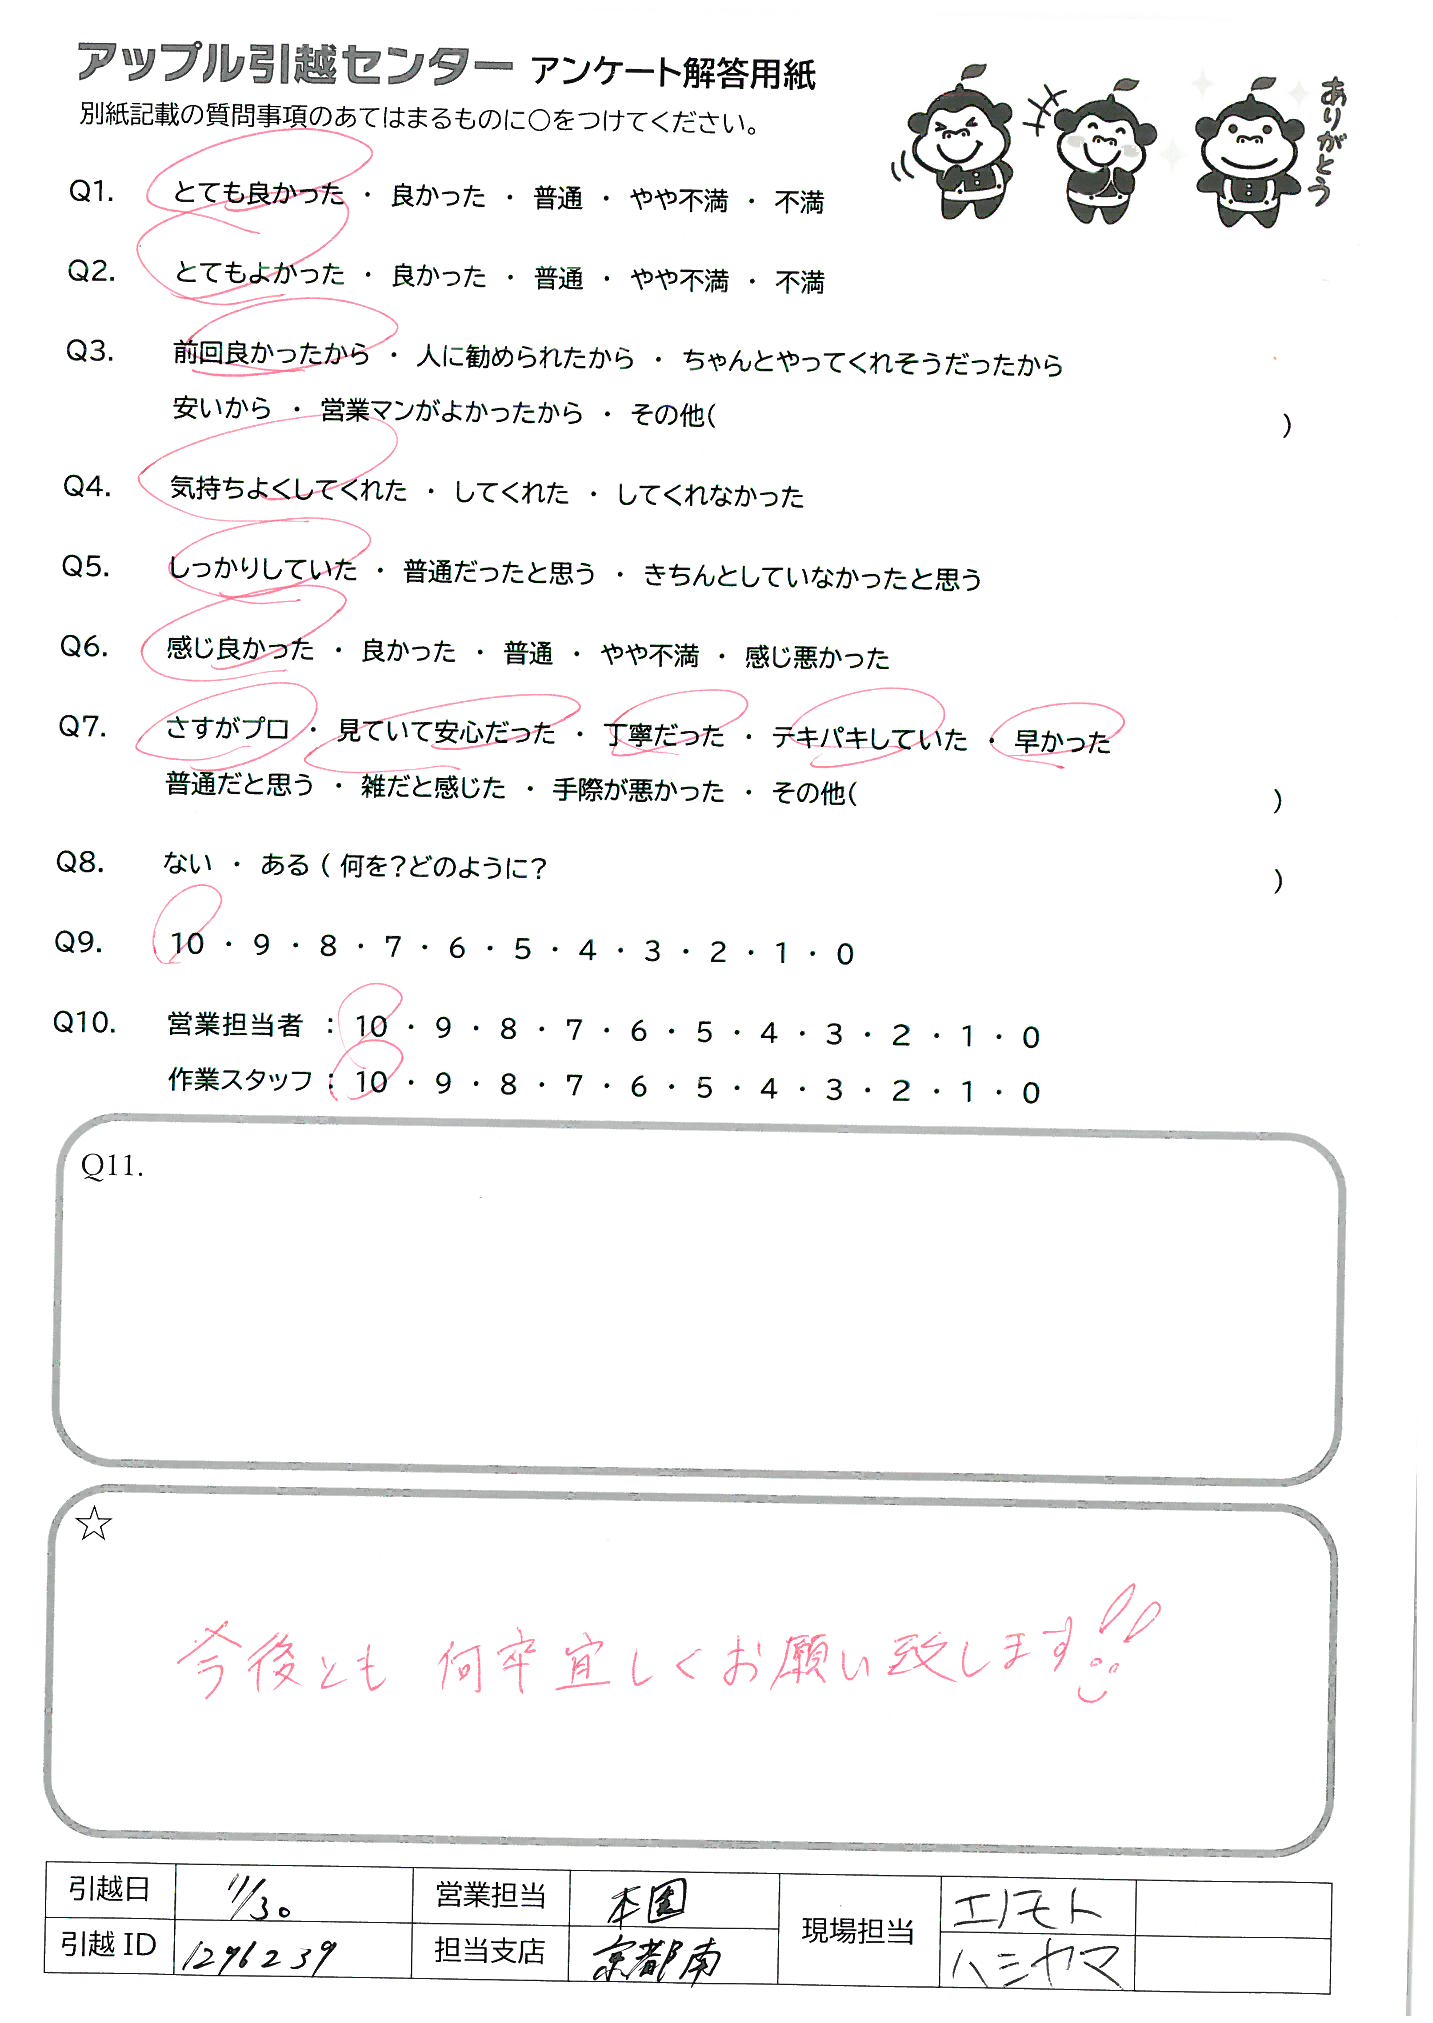 アップル引越センター アンケート解答用紙
別紙記載の質問事項のあてはまるものに○をつけてください。
ありがとう
Q1. とても良かった ・ 良かった ・ 普通 ・ やや不満 ・ 不満
Q2. とてもよかった ・ 良かった ・ 普通 ・ やや不満 ・ 不満
Q3. 前回良かったから ・ 人に勧められたから ・ ちゃんとやってくれそうだったから
安いから ・ 営業マンがよかったから ・ その他( )
Q4. 気持ちよくしてくれた ・ してくれた ・ してくれなかった
Q5. しっかりしていた ・ 普通だったと思う ・ きちんとしていなかったと思う
Q6. 感じ良かった ・ 良かった ・ 普通 ・ やや不満 ・ 感じ悪かった
Q7. さすがプロ ・ 見ていて安心だった ・ 丁寧だった ・ テキパキしていた ・ 早かった
普通だと思う ・ 雑だと感じた ・ 手際が悪かった ・ その他( )
Q8. ない ・ ある ( 何を?どのように? )
Q9. 10 ・ 9 ・ 8 ・ 7 ・ 6 ・ 5 ・ 4 ・ 3 ・ 2 ・ 1 ・ 0
Q10. 営業担当者 : 10 ・ 9 ・ 8 ・ 7 ・ 6 ・ 5 ・ 4 ・ 3 ・ 2 ・ 1 ・ 0
作業スタッフ : 10 ・ 9 ・ 8 ・ 7 ・ 6 ・ 5 ・ 4 ・ 3 ・ 2 ・ 1 ・ 0
Q11.
☆
今後とも 何卒宜しくお願い致します!!
引越日 11/30 営業担当 本園 現場担当 エノモト
引越 ID 1296239 担当支店 京都南 ハシヤマ